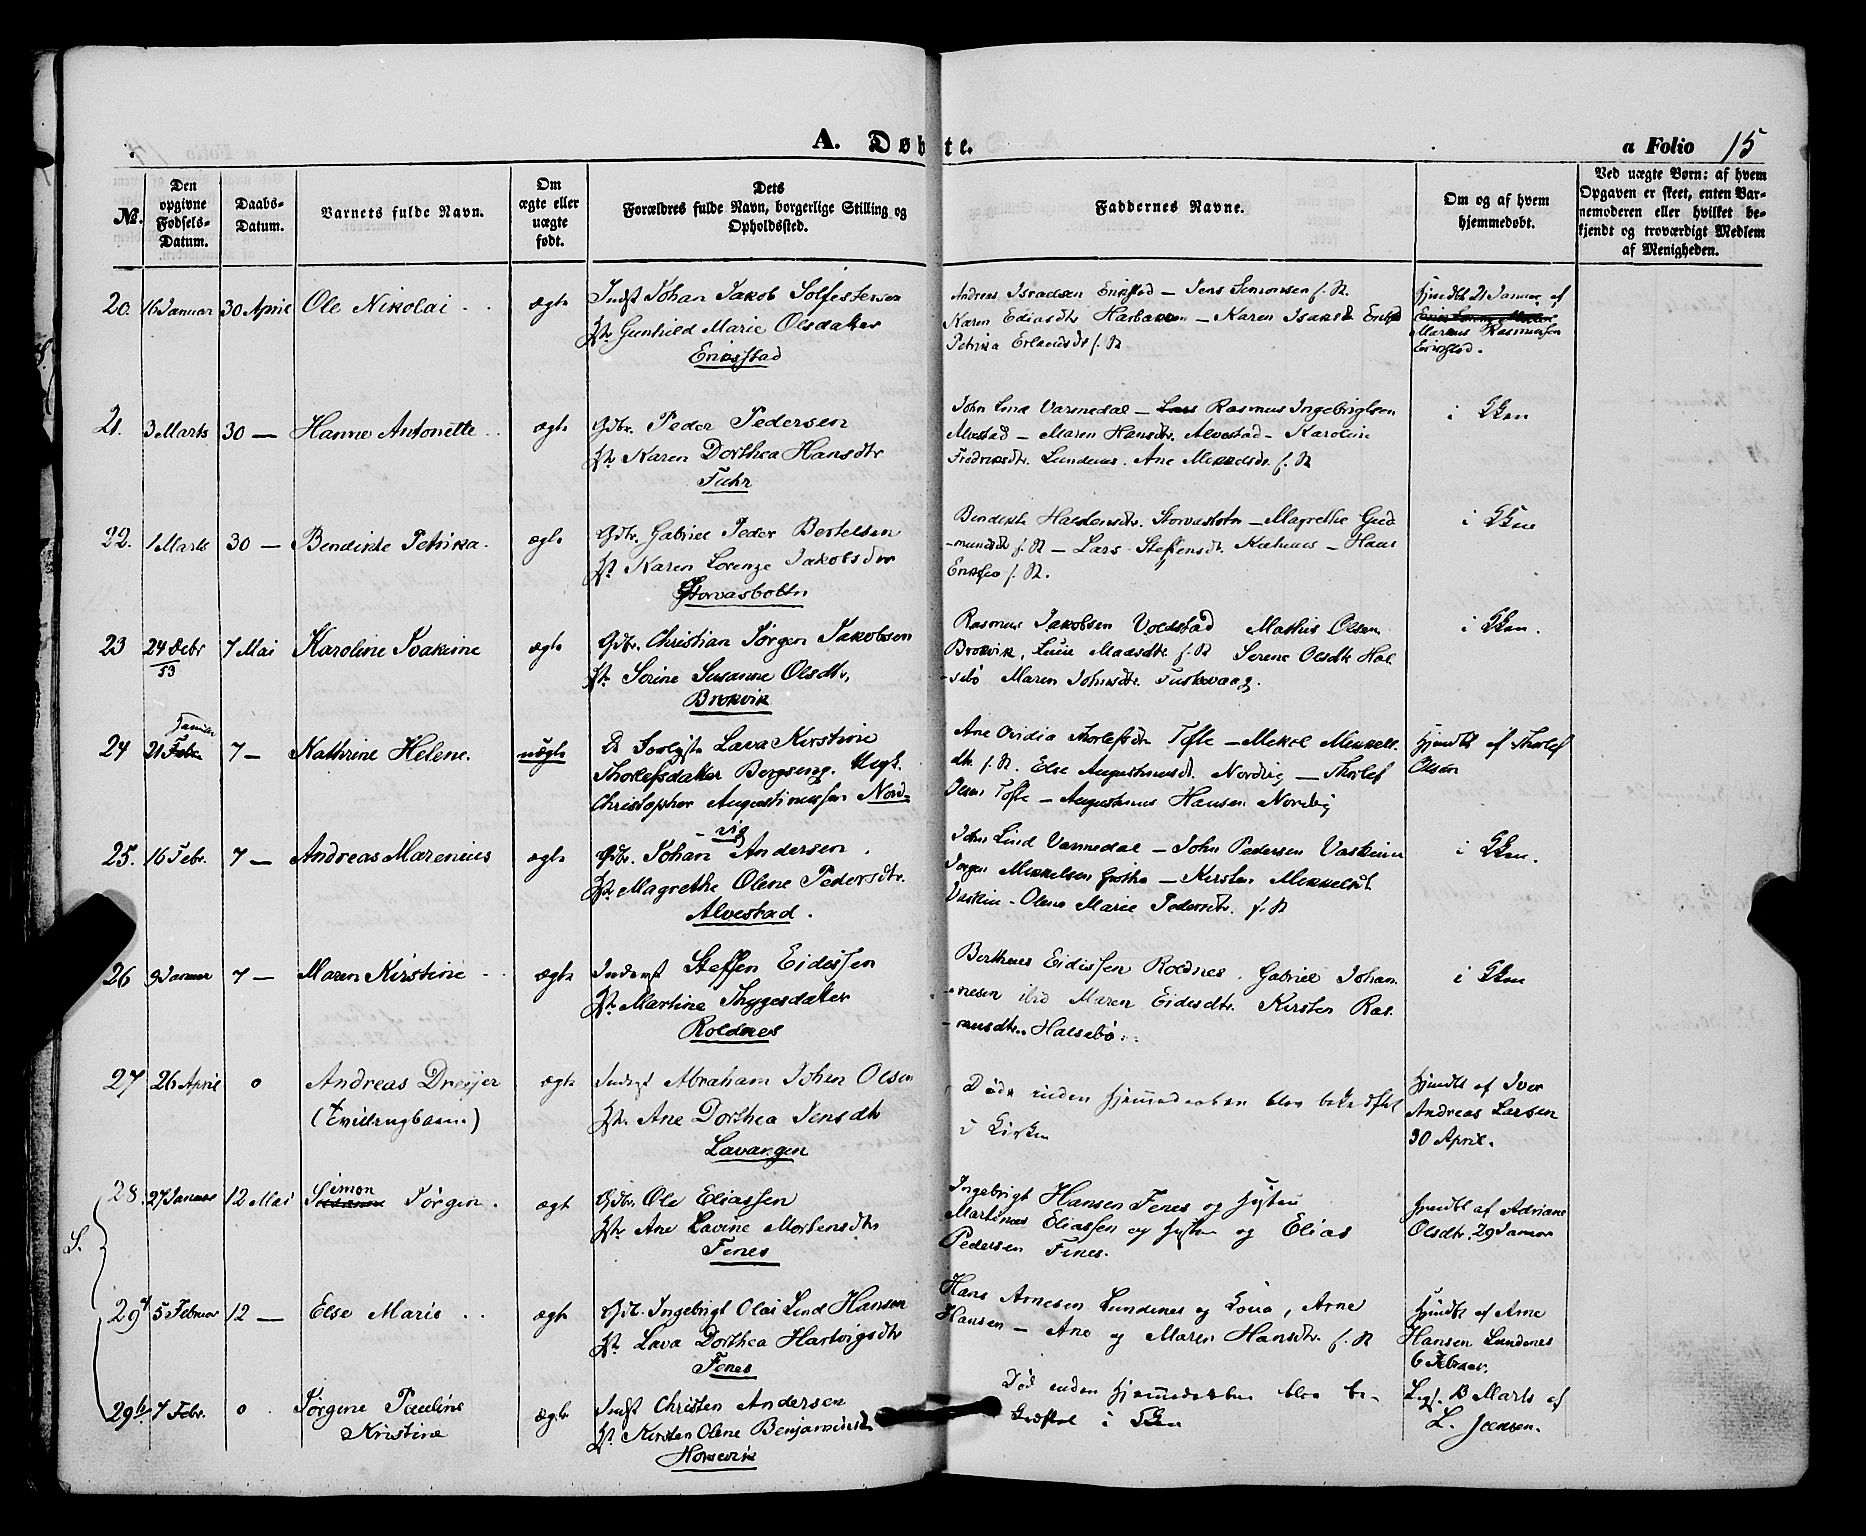 A. Døbte.
a Folio 15
No.
Den opgivne Fødsels-Datum.
Daabs-Datum.
Varnets fulde Navn.
Om ægte eller uægte født.
Dets Forældres fulde Navn, borgerlige Stilling og Opholdssted.
Faddernes Navne.
Om og af hvem hjemmedøbt.
Ved uægte Børn: af hvem Opgaven er skeet, enten Barnemoderen eller hvilket bekjendt og troværdigt Medlem af Menigheden.
20. 16 Januar 30 April Ole Nikolai ægte Indst Johan Jakob
Gunhild Marie Olsdatter
Erikstad
Andreas Israelsen Erikstad — Jens Simonsen f. St.
Karen — Karen Isaksdt
Petrika Erlandsdt f. St
Hjmdbt 21 Januar af
Marcus Rasmussen
Erikstad.
21. 3 Marts 30 — Hanne Antonette ægte Gdbr. Peder Pedersen
Karen Dorthea Hansdtr
Fuhr
John Lind Varmedal — Rasmus
Alvestad — Maren Hansdtr. Alvestad — Karoline
Fredriksdtr. Lundenes. Ane Mikkelsdt. f. St
i Kken
22. 1 Marts 30 — Bendikte Petrika. ægte Gdbr. Gabriel Peder Bertelsen
Karen Lorenze Jakobsdtr
Storvasbottn
— Magrethe Gud
-mundsdt f. St — Lars — Hans
Eriksen f. St.
i Kken
23 24 Debr 53 7 Mai Karoline Joakime ægte Gdbr. Christian Jørgen Jakobsen
Sørine Susanne Olsdtr,
Brokvik
Rasmus Jakobsen Voldstad Mathis Olsen
Brokvik, Madsdtr. f. St Serene Olsdtr Hal-
-sebø Maren Johnsdtr.
i Kken.
24 21 Januar 7 — Kathrine Helene. uægte Lava Kirstine
Thorlefsdatter
Christopher Augustinussen Nord-
-vig
Ane Ovidia Thorlefsdtr Tofte —
f. St. Else Augustinusdt. Nordvig — Thorlef
Olsen Tofte — Augustinus Hansen Nordvig
Hjmdbt af Thorlef
Olsen
25. 16 Febr. 7 — Andreas Marenius ægte Gdbr. Johan Andersen
Magrethe Olene Pedersdtr.
Alvestad.
John Lind Varmedal — John Pedersen
Jørgen Mikkelsen — Kirsten Mikkelsdt
— Olene Marie Pedersdtr. f. St
i Kken.
26 9 Januar 7 — Maren Kirstine ægte Steffen Eidissen
Martine Thygesdatter
Roldnes
Eidissen Roldnes. Gabriel Johan-
-nesen ibid Maren Eidesdtr. Kirsten Ras-
-musdtr. Halsebø.
i Kken
27 26 April o Andreas Dreyer
(Tvillingbarn)
ægte Indst Abraham Johan Olsen
Ane Dorthea Jensdtr
Lavangen
Døde inden hjemmedaaben blev bekræftet
i Kirken
Hjmdbt af Iver
Andreas Larsen
30 April.
S.
28. 27 Januar 12 Mai Simon Jørgen. ægt Gdbr. Ole Eliassen
Ane Lavine Mortensdtr
Fenes
Ingebrigt Hansen Fenes og Hustru
Martinus Eliassen og Hustru og Elias
Pedersen Fenes.
Hjmdbt af Adriane
Olsdtr. 29 Januar
29a 5 Februar 12 — Else Marie ægt Gdb. Ingebrigt Olai Lind Hansen
Lava Dorthea Hartvigsdtr
Fenes
Hans Arnesen Lundenes og Kona, Arne
Hansen — Ane og Maren Hansdtr. f. St
Hjmdbt af Arne
Hansen Lundenes
6 Februar.
29b 7 Febr. o Jørgine Pauline
Kristine
ægte Indst Christen Andersen
Kirsten Olene
Død inden hjemmedaaben blev be-
kræftet i Kken
Marts af
L. Jensen.